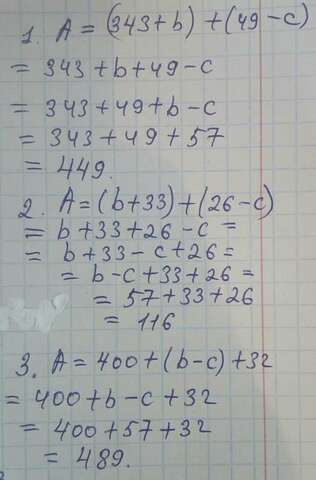 1. A = (343+b) + (49-c)
= 343+b+49-c
= 343+49+b-c
= 343+49+57
= 449.
2. A=(b+33)+(26-c)
= b+33+26-c =
= b+33-c+26=
= b-c+33+26=
= 57+33+26
= 116
3. A=400+(b-c)+32
= 400+b-c+32
= 400+57+32
= 489.